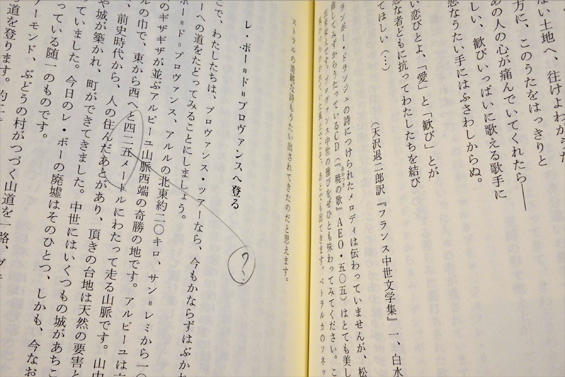 ない土地へ、往けよわが
方に、このうたをはっきりと
あの人の心が痛んでいてくれたら――
しい、歓びいっぱいに歌える歌手に
悲なうたい手にはふさわしからぬ。
い恋びとよ、「愛」と「歓び」とが
な者どもに抗ってわたしたちを結び
てほしい(…)
(天沢退二郎訳『フランス中世文学集』一、白水
の詩に付けられたメロディは伝わっていませんが、松
CD(『暁の歌』AEO・五〇五)はとても美し
中世の雅びをぜひとも味わってみてください。こ
ストラルの難解な詩もうたい出されてきたのだと思えます。
レ・ボー=ド=プロヴァンスへ登る
こで、わたしたちは、プロヴァンス・ツアーなら、今もかならずはぶか
ボー=ド=プロヴァンス、アルルの北東約二〇キロ、サン=レミから一〇
ーへの道をたどってみることにしましょう。
のギザギザが並ぶアルピーユ山脈西端の奇勝の地です。アルピーユは
ルの巾で、東から西へと四二五メートルにわたって走る山脈です。山中
、前史時代から、人の住んだあとがあり、頂きの台地は天然の要害と
や城が築かれ、町ができてきました。中世にはいくつもの城があちこ
っていました。今日のレ・ボーの廃墟はそのひとつ、しかも、今なお
っている随一のものです。
ーモンド、ぶどうの村がつづく山道を一路、
道を登ります。
?